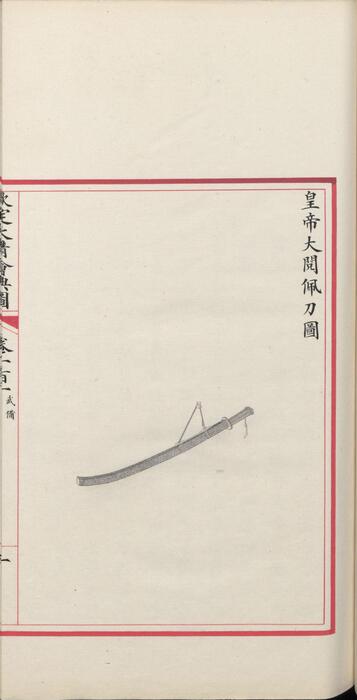 皇帝大閱佩刀圖
欽定大清會典圖
卷一百一
武備
一